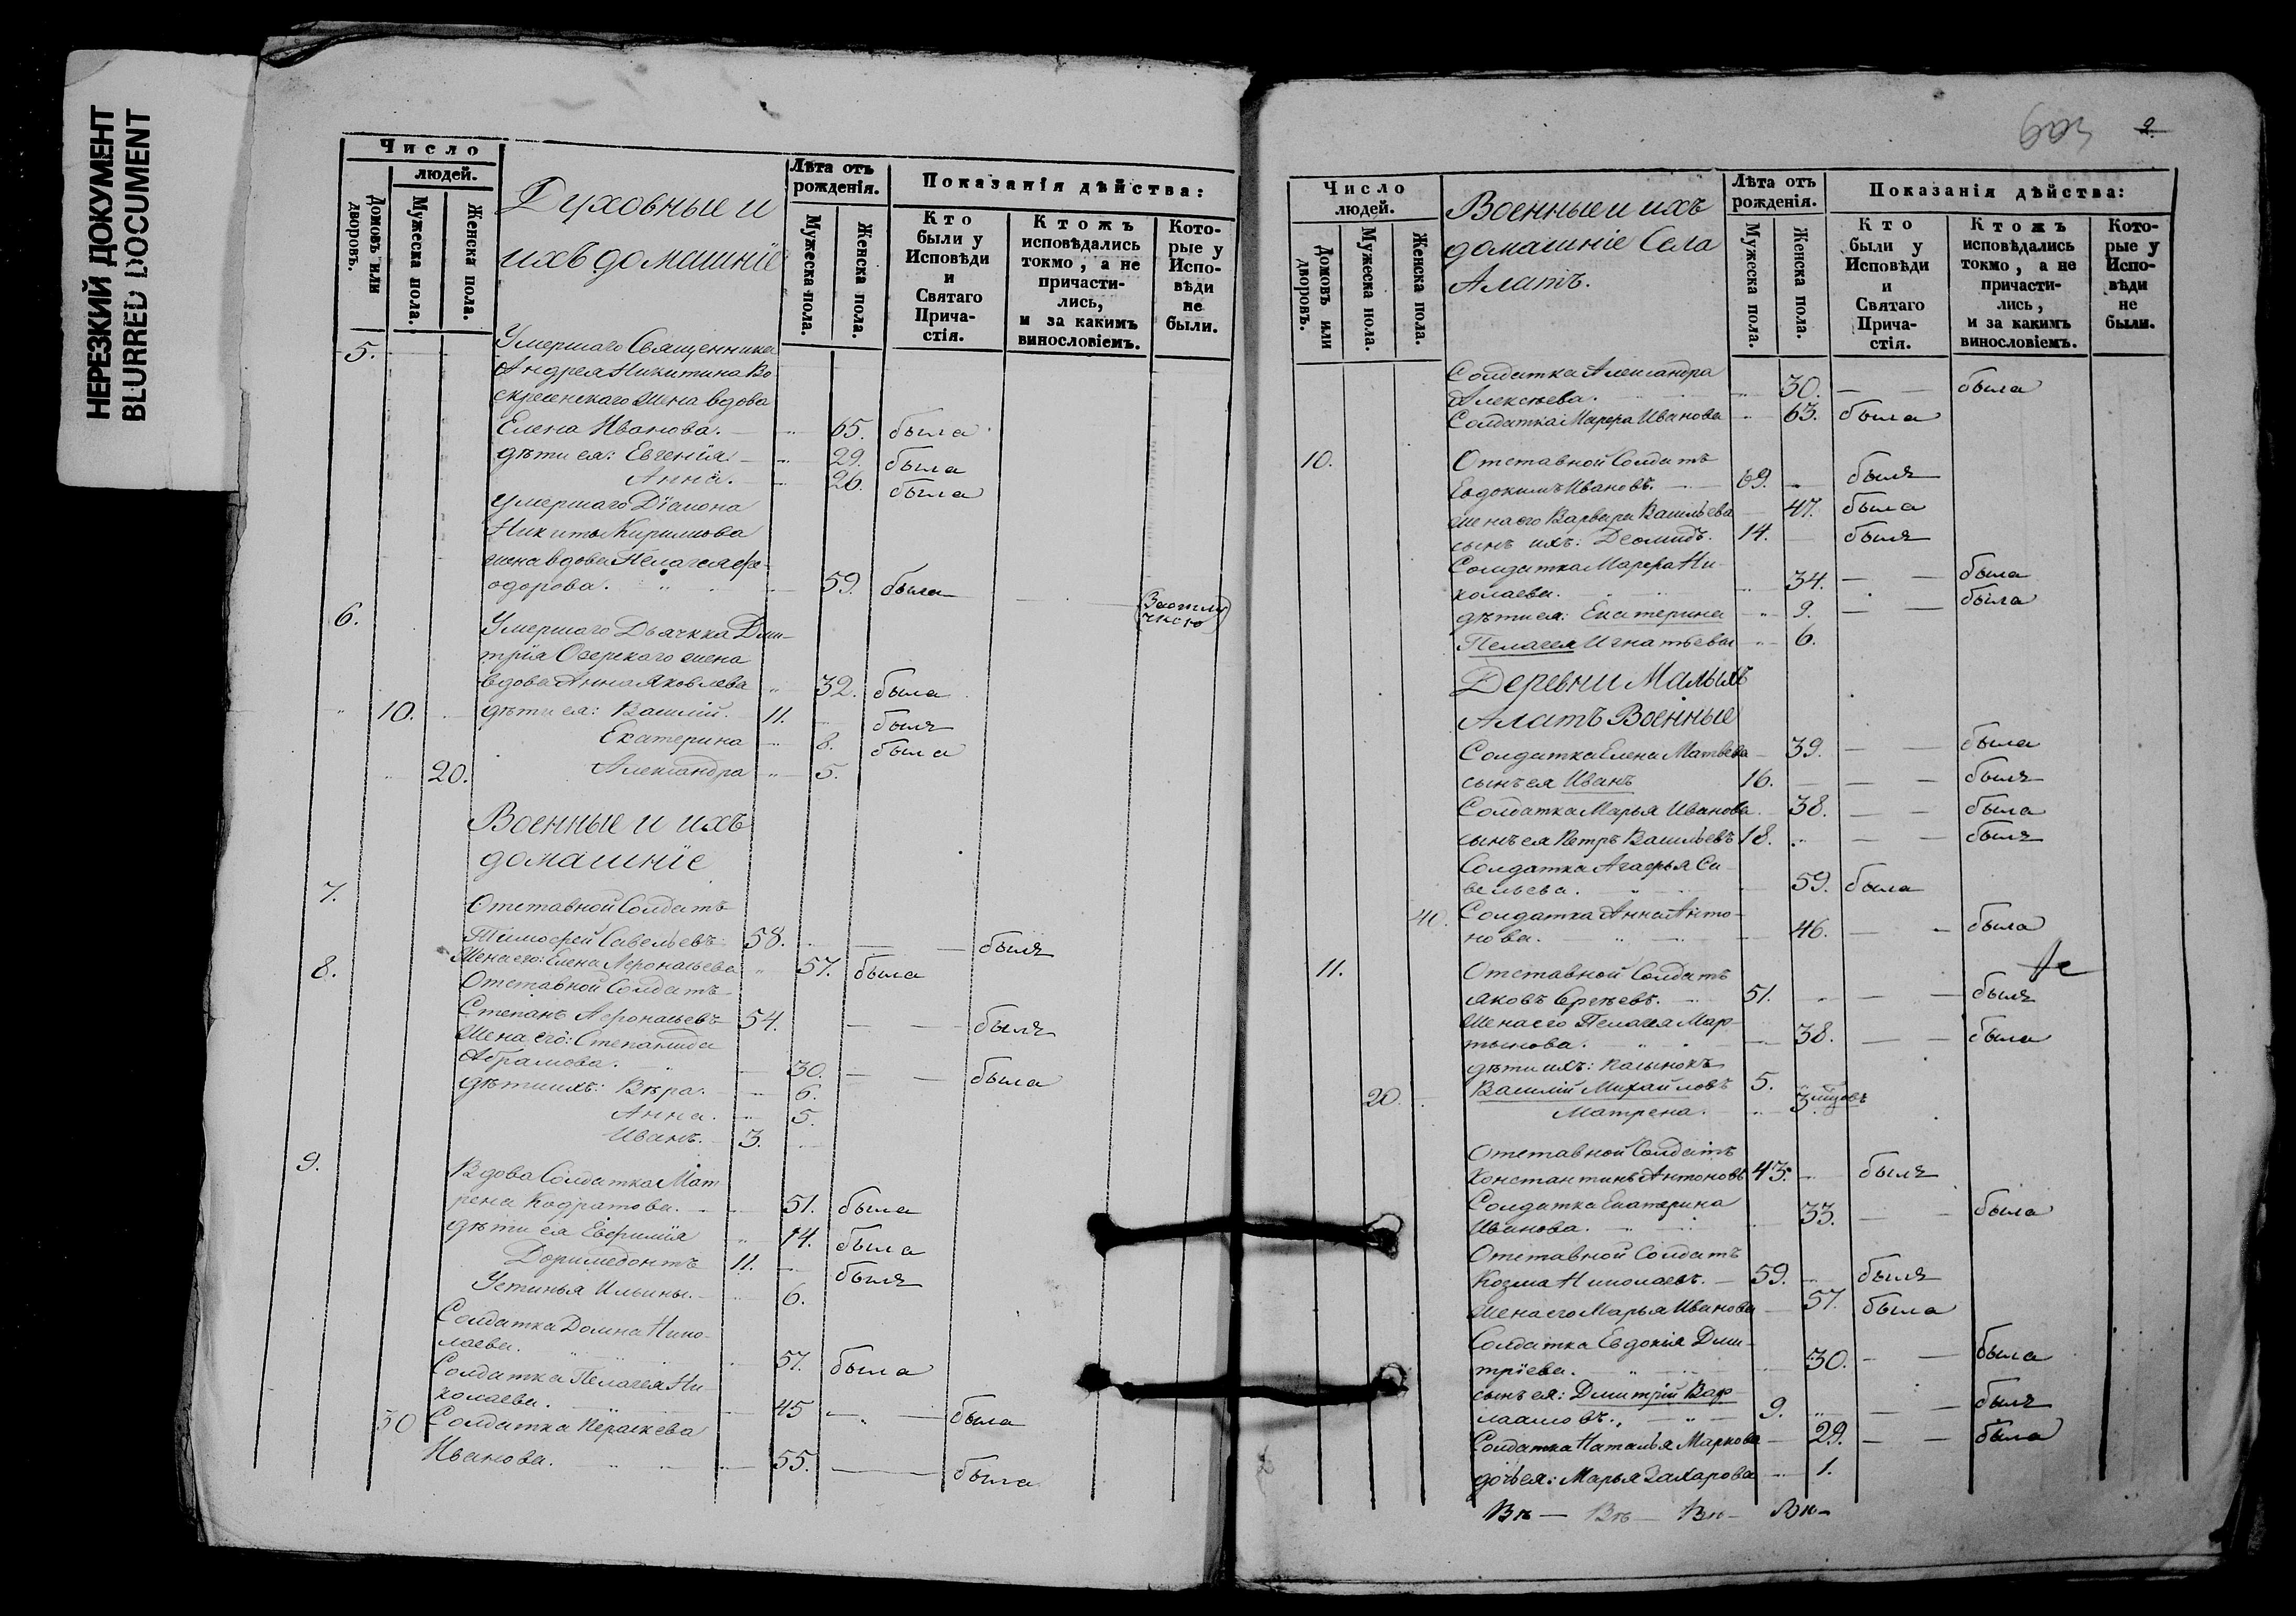 НЕРЕЗКИЙ ДОКУМЕНТ
BLURRED DOCUMENT
Число
людей.
Домовъ или дворовъ.
Мужеска пола.
Женска пола.
Духовные и
ихъ домашніе
Лѣта отъ
рожденія.
Мужеска пола.
Женска пола.
Показанія дѣйства:
Кто
были у
Исповѣди
и
Святаго
Прича-
стія.
Ктожъ
исповѣдались
токмо, а не
причасти-
лись,
и за какимъ
винословіемъ.
Кото-
рые у
Испо-
вѣди
не
были.
5. Умершаго Священника
Андрея Никитина Во
скресенскаго жена вдова
Елена Иванова. 65. была
дѣти ея: Евгенія 29. была
Анна. 26. была
Умершаго Діакона
Никиты Кирилова
жена вдова Пелагея Фе-
одорова. 59. была
6. Умершаго Дьячка Дми-
трія Озерскаго жена
вдова Анна Яковлева 32. была
10. дѣти ея: Василій. 11. былъ
Екатерина 8. была
20. Александра 5.
Военные и ихъ
домашніе
7. Отставной Солдатъ
Тимофей Савельевъ 58. былъ
Жена его: Елена Афонасьева 57. была
8. Отставной Солдатъ
Степанъ Афонасьевъ 54. былъ
Жена его: Степанида
Абрамова. 30. была
дѣти ихъ: Вѣра. 6.
Анна. 5.
Иванъ. 3.
9. Вдова Солдатка Мат
рена Кодратова. 51. была
дѣти ея Евфимія 14. была
Доримедонтъ 11. былъ
Устинья Ильины. 6.
Солдатка Домна Нико-
лаева. 57. была
Солдатка Пелагея Ни
колаева. 45 была
30 Солдатка Параскева
Иванова. 55. была
603 2.
Число
людей.
Домовъ или дворовъ.
Мужеска пола.
Женска пола.
Военные и ихъ
домашніе Села
Алатъ.
Лѣта отъ
рожденія.
Мужеска пола.
Женска пола.
Показанія дѣйства:
Кто
были у
Исповѣди
и
Святаго
Прича-
стія.
Ктожъ
исповѣдались
токмо, а не
причасти-
лись,
и за какимъ
винословіемъ.
Кото-
рые у
Испо-
вѣди
не
были.
Солдатка Александра
Алексѣева. 30. была
Солдатка Марфа Иванова 63. была
10. Отставной Солдатъ
Евдокимъ Ивановъ. 69. былъ
жена его Варвара Васильева 47. была
сынъ ихъ: Деомидъ. 14. былъ
Солдатка Марфа Ни-
колаева. 34. была
дѣти ея: Екатерина 9. была
Пелагея Игнатьевы 6.
Деревни Малыхъ
Алатъ Военные
Солдатка Елена Матвѣева 39. была
сынъ ея Иванъ 16. былъ
Солдатка Марья Иванова 38. была
сынъ ея Петръ Васильевъ 18. былъ
Солдатка Агафья Са
вельева. 59. была
40. Солдатка Анна Анто-
нова. 46. была
11. Отставной Солдатъ
Яковъ Сергѣевъ. 51. былъ
Жена его Пелагея Мар-
тынова. 38. была
дѣти ихъ:
20. Василій Михайловъ 5.
Матрена. 3
Отставной Солдатъ
Константинъ Антоновъ 43. былъ
Солдатка Екатерина
Иванова. 33. была
Отставной Солдатъ
Козма Николаевъ. 59. былъ
Жена его Марья Иванова 57. была
Солдатка Евдокія Дми-
тріева. 30. была
сынъ ея: Дмитрій Вар-
лаамовъ. 9. былъ
Солдатка Наталья Маркова 29. была
дочь ея: Марья Захарова 1.